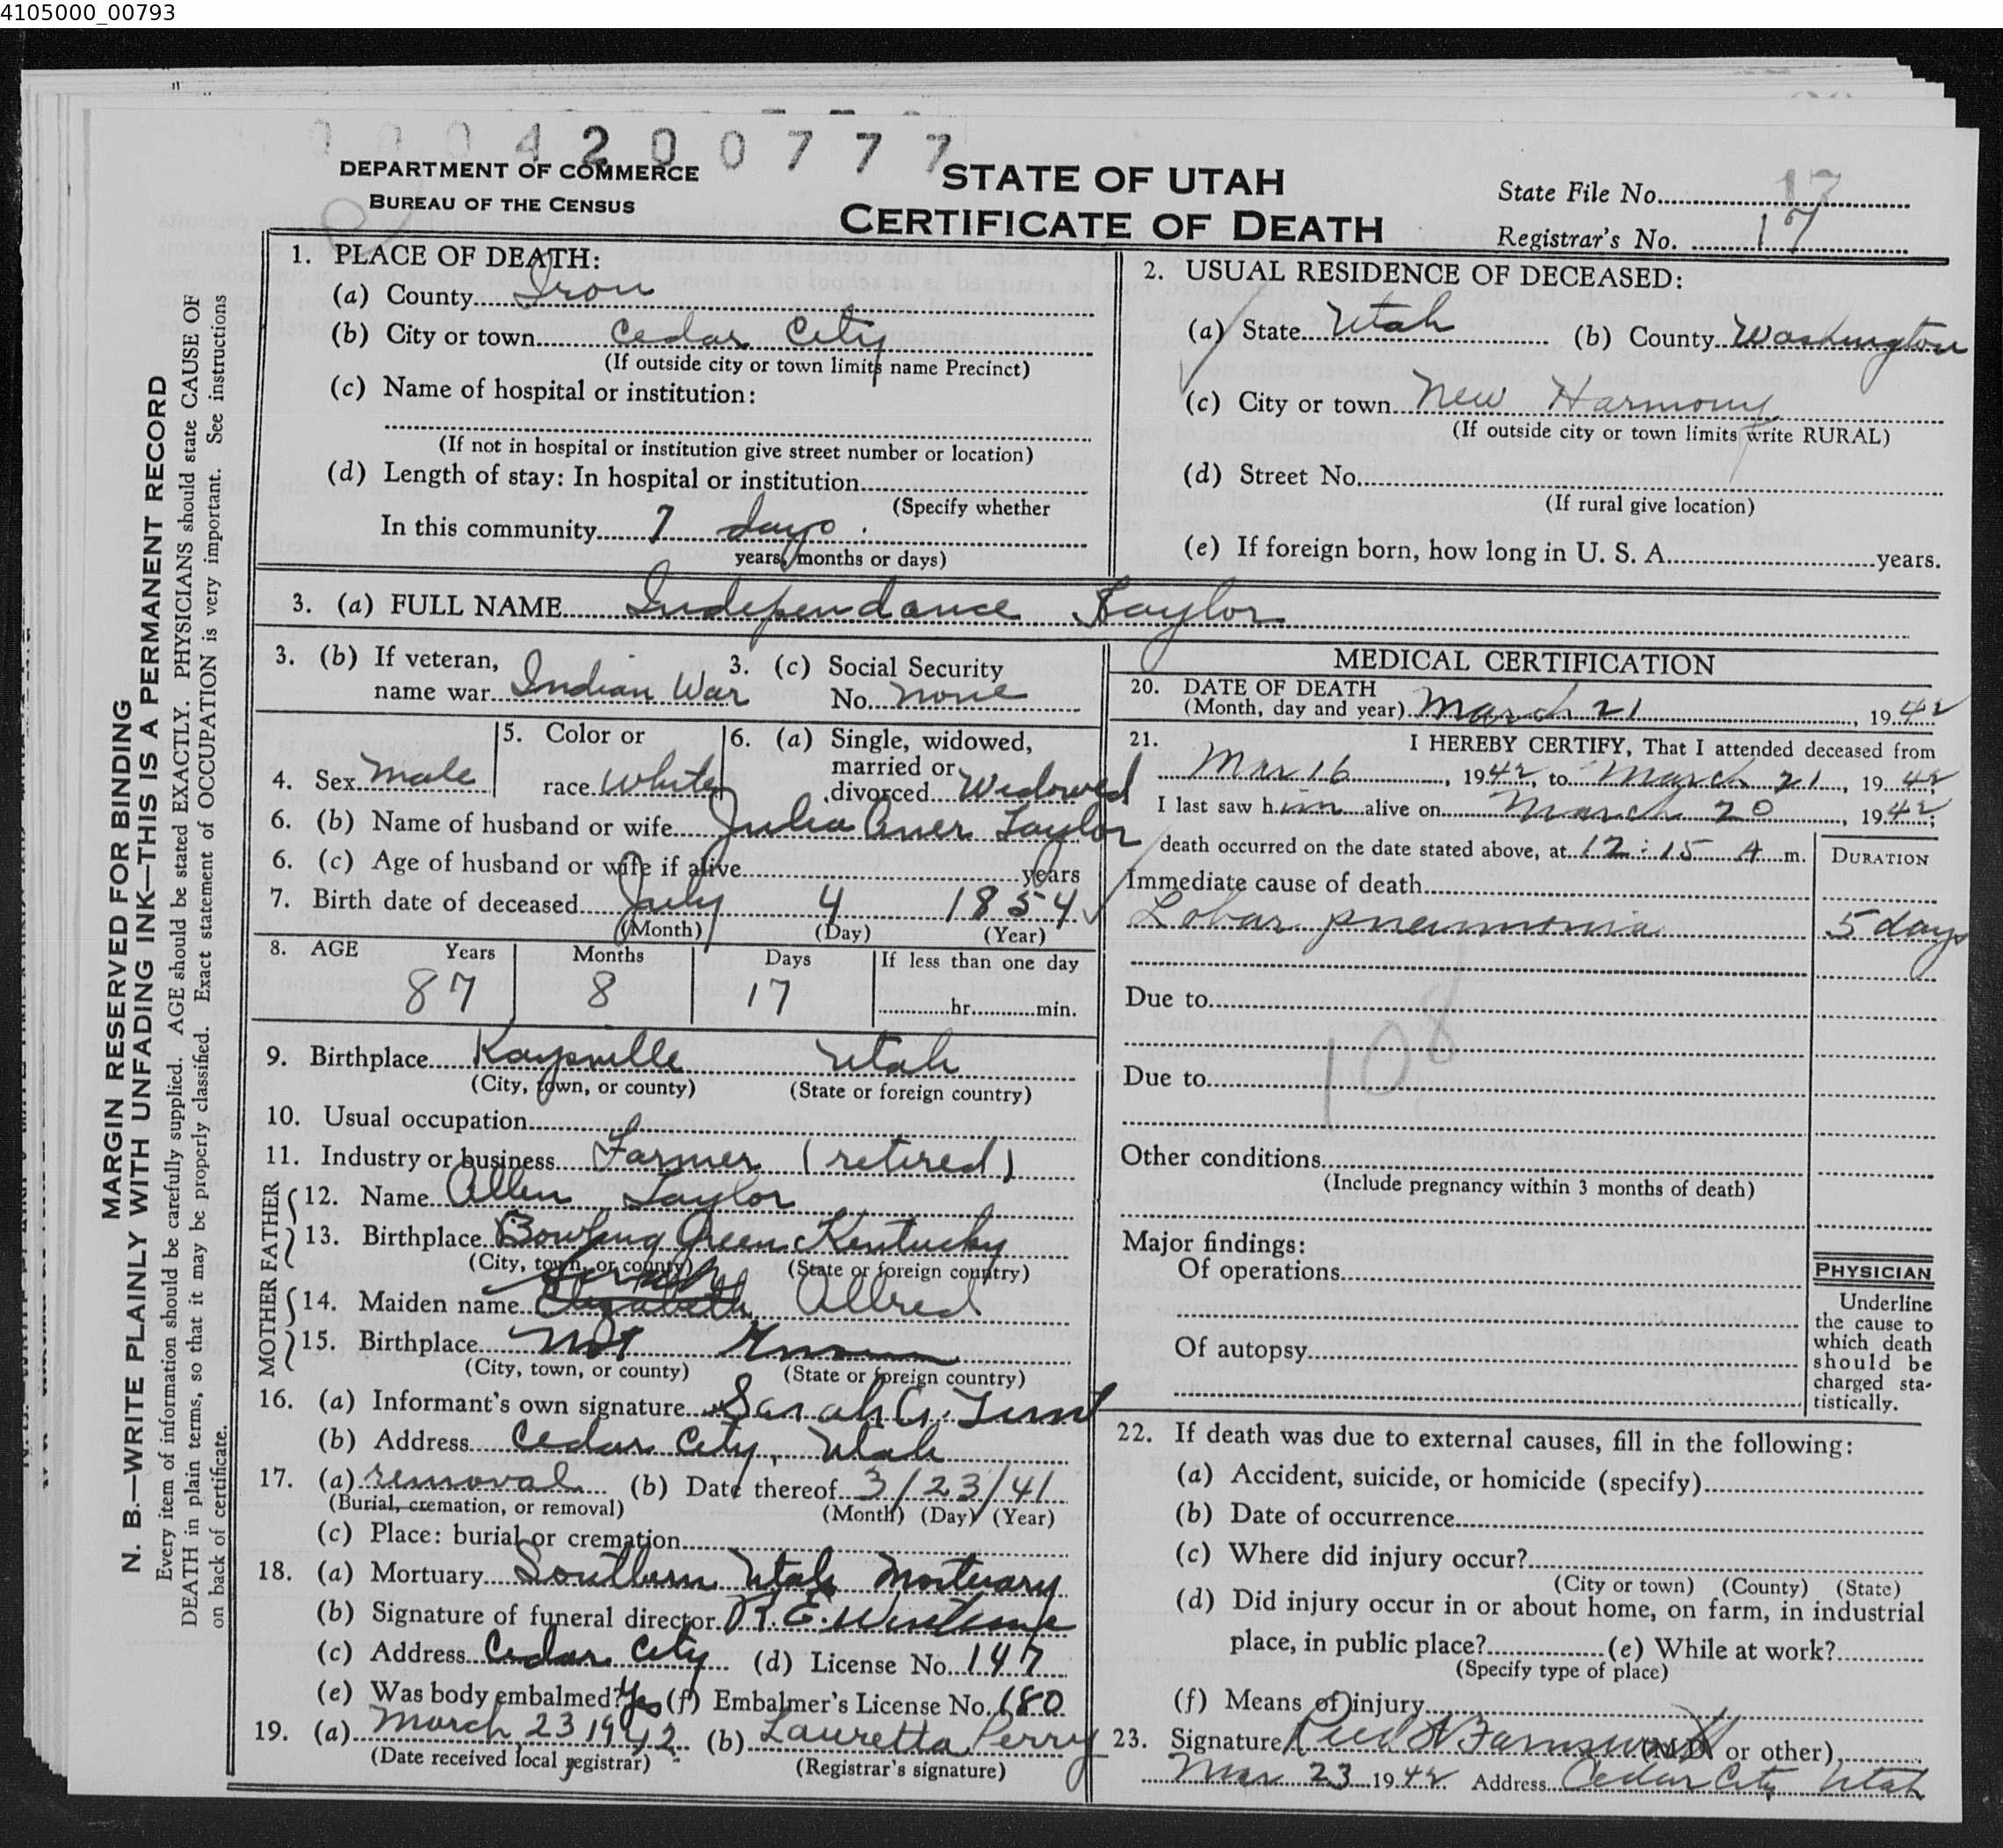 4105000_00793
0 0 0 4 2 0 0 7 7 7
DEPARTMENT OF COMMERCE
BUREAU OF THE CENSUS
STATE OF UTAH
CERTIFICATE OF DEATH
State File No. 17
Registrar's No. 17
MARGIN RESERVED FOR BINDING
N. B.—WRITE PLAINLY WITH UNFADING INK—THIS IS A PERMANENT RECORD
Every item of information should be carefully supplied. AGE should be stated EXACTLY. PHYSICIANS should state CAUSE OF
DEATH in plain terms, so that it may be properly classified. Exact statement of OCCUPATION is very important. See instructions
on back of certificate.
1. PLACE OF DEATH:
(a) County Iron
(b) City or town Cedar City
(If outside city or town limits name Precinct)
(c) Name of hospital or institution:
(If not in hospital or institution give street number or location)
(d) Length of stay: In hospital or institution
(Specify whether
In this community 7 days
years, months or days)
2. USUAL RESIDENCE OF DECEASED:
(a) State Utah (b) County Washington
(c) City or town New Harmony
(If outside city or town limits write RURAL)
(d) Street No.
(If rural give location)
(e) If foreign born, how long in U. S. A. years.
3. (a) FULL NAME Independance Taylor
3. (b) If veteran, name war Indian War
3. (c) Social Security No. none
4. Sex male
5. Color or race White
6. (a) Single, widowed, married or divorced Widowed
6. (b) Name of husband or wife Julia Taylor
6. (c) Age of husband or wife if alive years
7. Birth date of deceased July 4 1854
(Month) (Day) (Year)
8. AGE Years Months Days If less than one day
87 8 17 hr. min.
9. Birthplace Kaysville Utah
(City, town, or county) (State or foreign country)
10. Usual occupation
11. Industry or business Farmer (retired)
FATHER
12. Name Allen Taylor
13. Birthplace Bowling Green Kentucky
(City, town, or county) (State or foreign country)
MOTHER
Sarah
14. Maiden name Elizabeth Allred
15. Birthplace Not Known
(City, town, or county) (State or foreign country)
16. (a) Informant's own signature Sarah A.
(b) Address Cedar City, Utah
17. (a) removal (b) Date thereof 3/23/41
(Burial, cremation, or removal) (Month) (Day) (Year)
(c) Place: burial or cremation
18. (a) Mortuary Southern Utah Mortuary
(b) Signature of funeral director R. E.
(c) Address Cedar City (d) License No. 147
(e) Was body embalmed? Yes (f) Embalmer's License No. 180
19. (a) March 23 1942 (b) Lauretta Perry
(Date received local registrar) (Registrar's signature)
MEDICAL CERTIFICATION
20. DATE OF DEATH
(Month, day and year) March 21, 1942
21. I HEREBY CERTIFY, That I attended deceased from
Mar 16, 1942, to March 21, 1942
I last saw him alive on March 20, 1942;
death occurred on the date stated above, at 12:15 A m.
DURATION
Immediate cause of death
Lobar pneumonia 5 days
Due to
108
Due to
Other conditions
(Include pregnancy within 3 months of death)
Major findings:
Of operations
Of autopsy
PHYSICIAN
Underline
the cause to
which death
should be
charged sta-
tistically.
22. If death was due to external causes, fill in the following:
(a) Accident, suicide, or homicide (specify)
(b) Date of occurrence
(c) Where did injury occur?
(City or town) (County) (State)
(d) Did injury occur in or about home, on farm, in industrial
place, in public place? (e) While at work?
(Specify type of place)
(f) Means of injury
23. Signature Reed Farnsworth (M.D. or other)
Mar 23 1942 Address Cedar City Utah